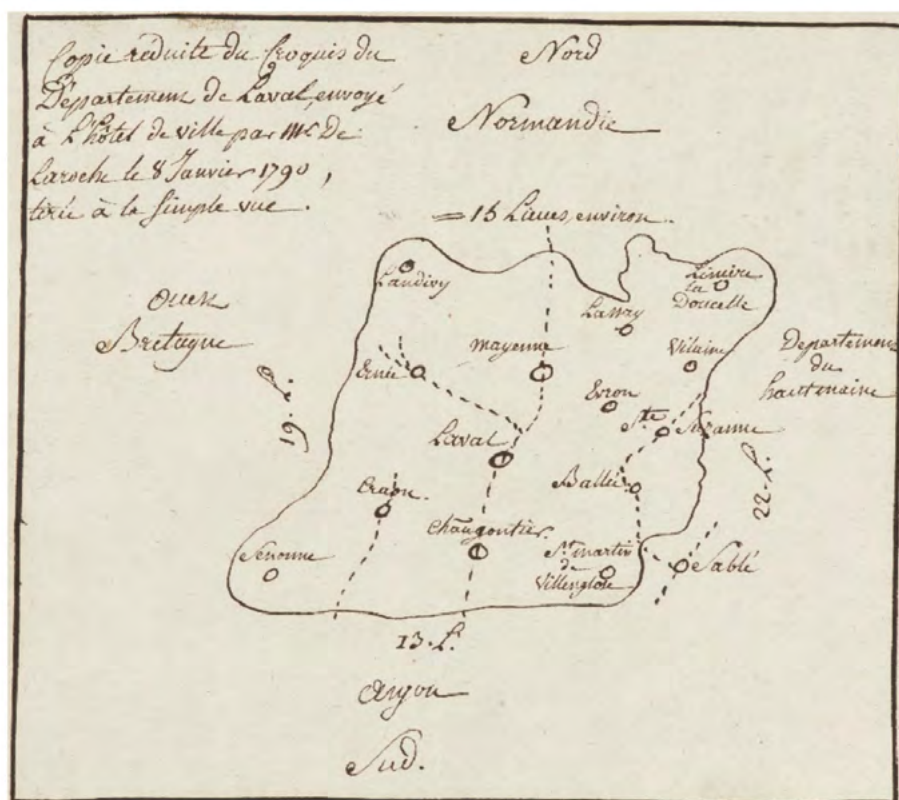 Copie réduite du Croquis du
Département de Laval, envoyé
à L'hôtel de ville par Mr. De
Laroche le 8 Janvier 1790,
tirée à la simple vue.
Nord
Normandie
= 15 Lieues, environ.
Landivy
Linière
la
Doucelle
Lassay
Ouest
Bretagne
Mayenne
Vilaine
Departement
du
hautmaine
Ernée
Evron
19. L.
Ste
Suzanne
Laval
Ballée
22. L.
Craon.
Châugontier.
Senonne
St martin
de
Villenglose
Sablé
13. L.
Anjou
Sud.